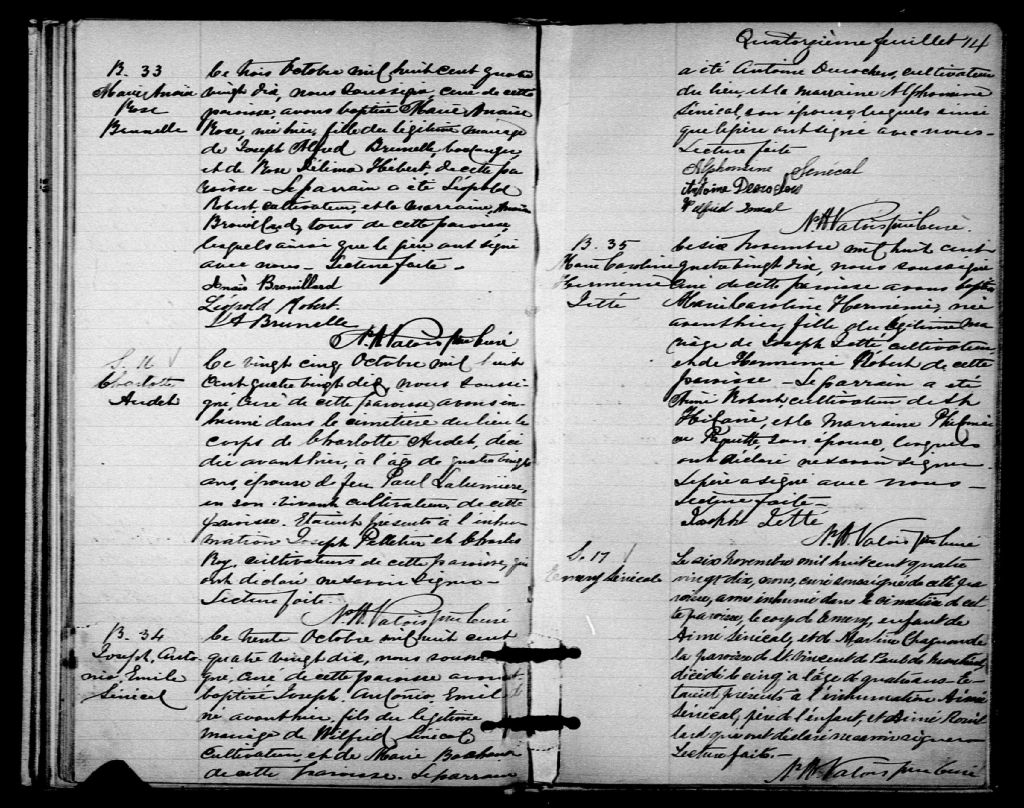 B. 33
Marie Anaïse
Rose
Brunelle
Le trois Octobre mil huit cent quatre
vingt dix, nous soussigné, curé de cette
paroisse, avons baptisé Marie Anaïse
Rose, née hier, fille du légitime mariage
de Joseph Alfred Brunelle, boulanger
et de Rose Délima Hébert, de cette pa
roisse - Le parrain a été Léopold
Robert, cultivateur, et la marraine,
Brouillard, tous de cette paroisse,
lesquels ainsi que le père ont signé
avec nous - Lecture faite -
Brouillard
Léopold Robert
J A Brunelle
N. H. Valois ptre curé
S. 16
Charlotte
Audet
Le vingt cinq Octobre mil huit
cent quatre vingt dix, nous soussi
gné, curé de cette paroisse avons in
humé dans le cimetière du lieu le
corps de Charlotte Audet, décé
dée avant hier, à l'âge de quatre vingt
ans, épouse de feu Paul
en son vivant cultivateur de cette
paroisse. Étaient présents à l'inhu
mation Joseph Pelletier et Charles
Roy, cultivateurs de cette paroisse, qui
ont déclaré ne savoir signer -
Lecture faite.
N. H. Valois ptre curé
B. 34
Joseph, Anto
nio, Emile
Sénécal
Le trente Octobre mil huit cent
quatre vingt dix, nous soussi
gné, curé de cette paroisse avons
baptisé Joseph Antonio Emile
né avant hier, fils du légitime
mariage de Wilfred Sénécal
cultivateur, et de Marie
de cette paroisse. Le parrain
Quatorzième feuillet 14
a été Antoine Desrochers, cultivateur
du lieu, et la marraine Alphonsine
Sénécal, son épouse, lesquels ainsi
que le père ont signé avec nous -
Lecture faite
Alphonsine Sénécal
Antoine Desrochers
Wilfrid
N. H. Valois ptre curé.
B. 35
Marie Caroline
Herménie
Jetté
Le six novembre mil huit cent
quatre vingt dix, nous soussigné
curé de cette paroisse avons baptisé
Marie Caroline Herménie, née
avant hier, fille du légitime ma
riage de Joseph Jetté, cultivateur,
et de Herménie Robert de cette
paroisse - Le parrain a été
Aimé Robert, cultivateur de St
Hilaire, et la marraine Philomè
ne Paquette son épouse, lesquels
ont déclaré ne savoir signer.
Le père a signé avec nous -
Lecture faite -
Joseph Jetté
N. H. Valois ptre curé
S. 17
Emery Sénécal
Le six novembre mil huit cent quatre
vingt dix, nous, curé soussigné de cette pa
roisse, avons inhumé dans le cimetière de cet
te paroisse, le corps de Emery, enfant de
Aimé Sénécal, et de Martine Chagnon de
la paroisse de St. Vincent de Paul de Montréal,
décédé le cinq à l'âge de quatre ans - É
taient présents à l'inhumation Aimé
Sénécal, père de l'enfant, et Aimé
qui ont déclaré ne savoir signer
Lecture faite -
N. H. Valois ptre curé